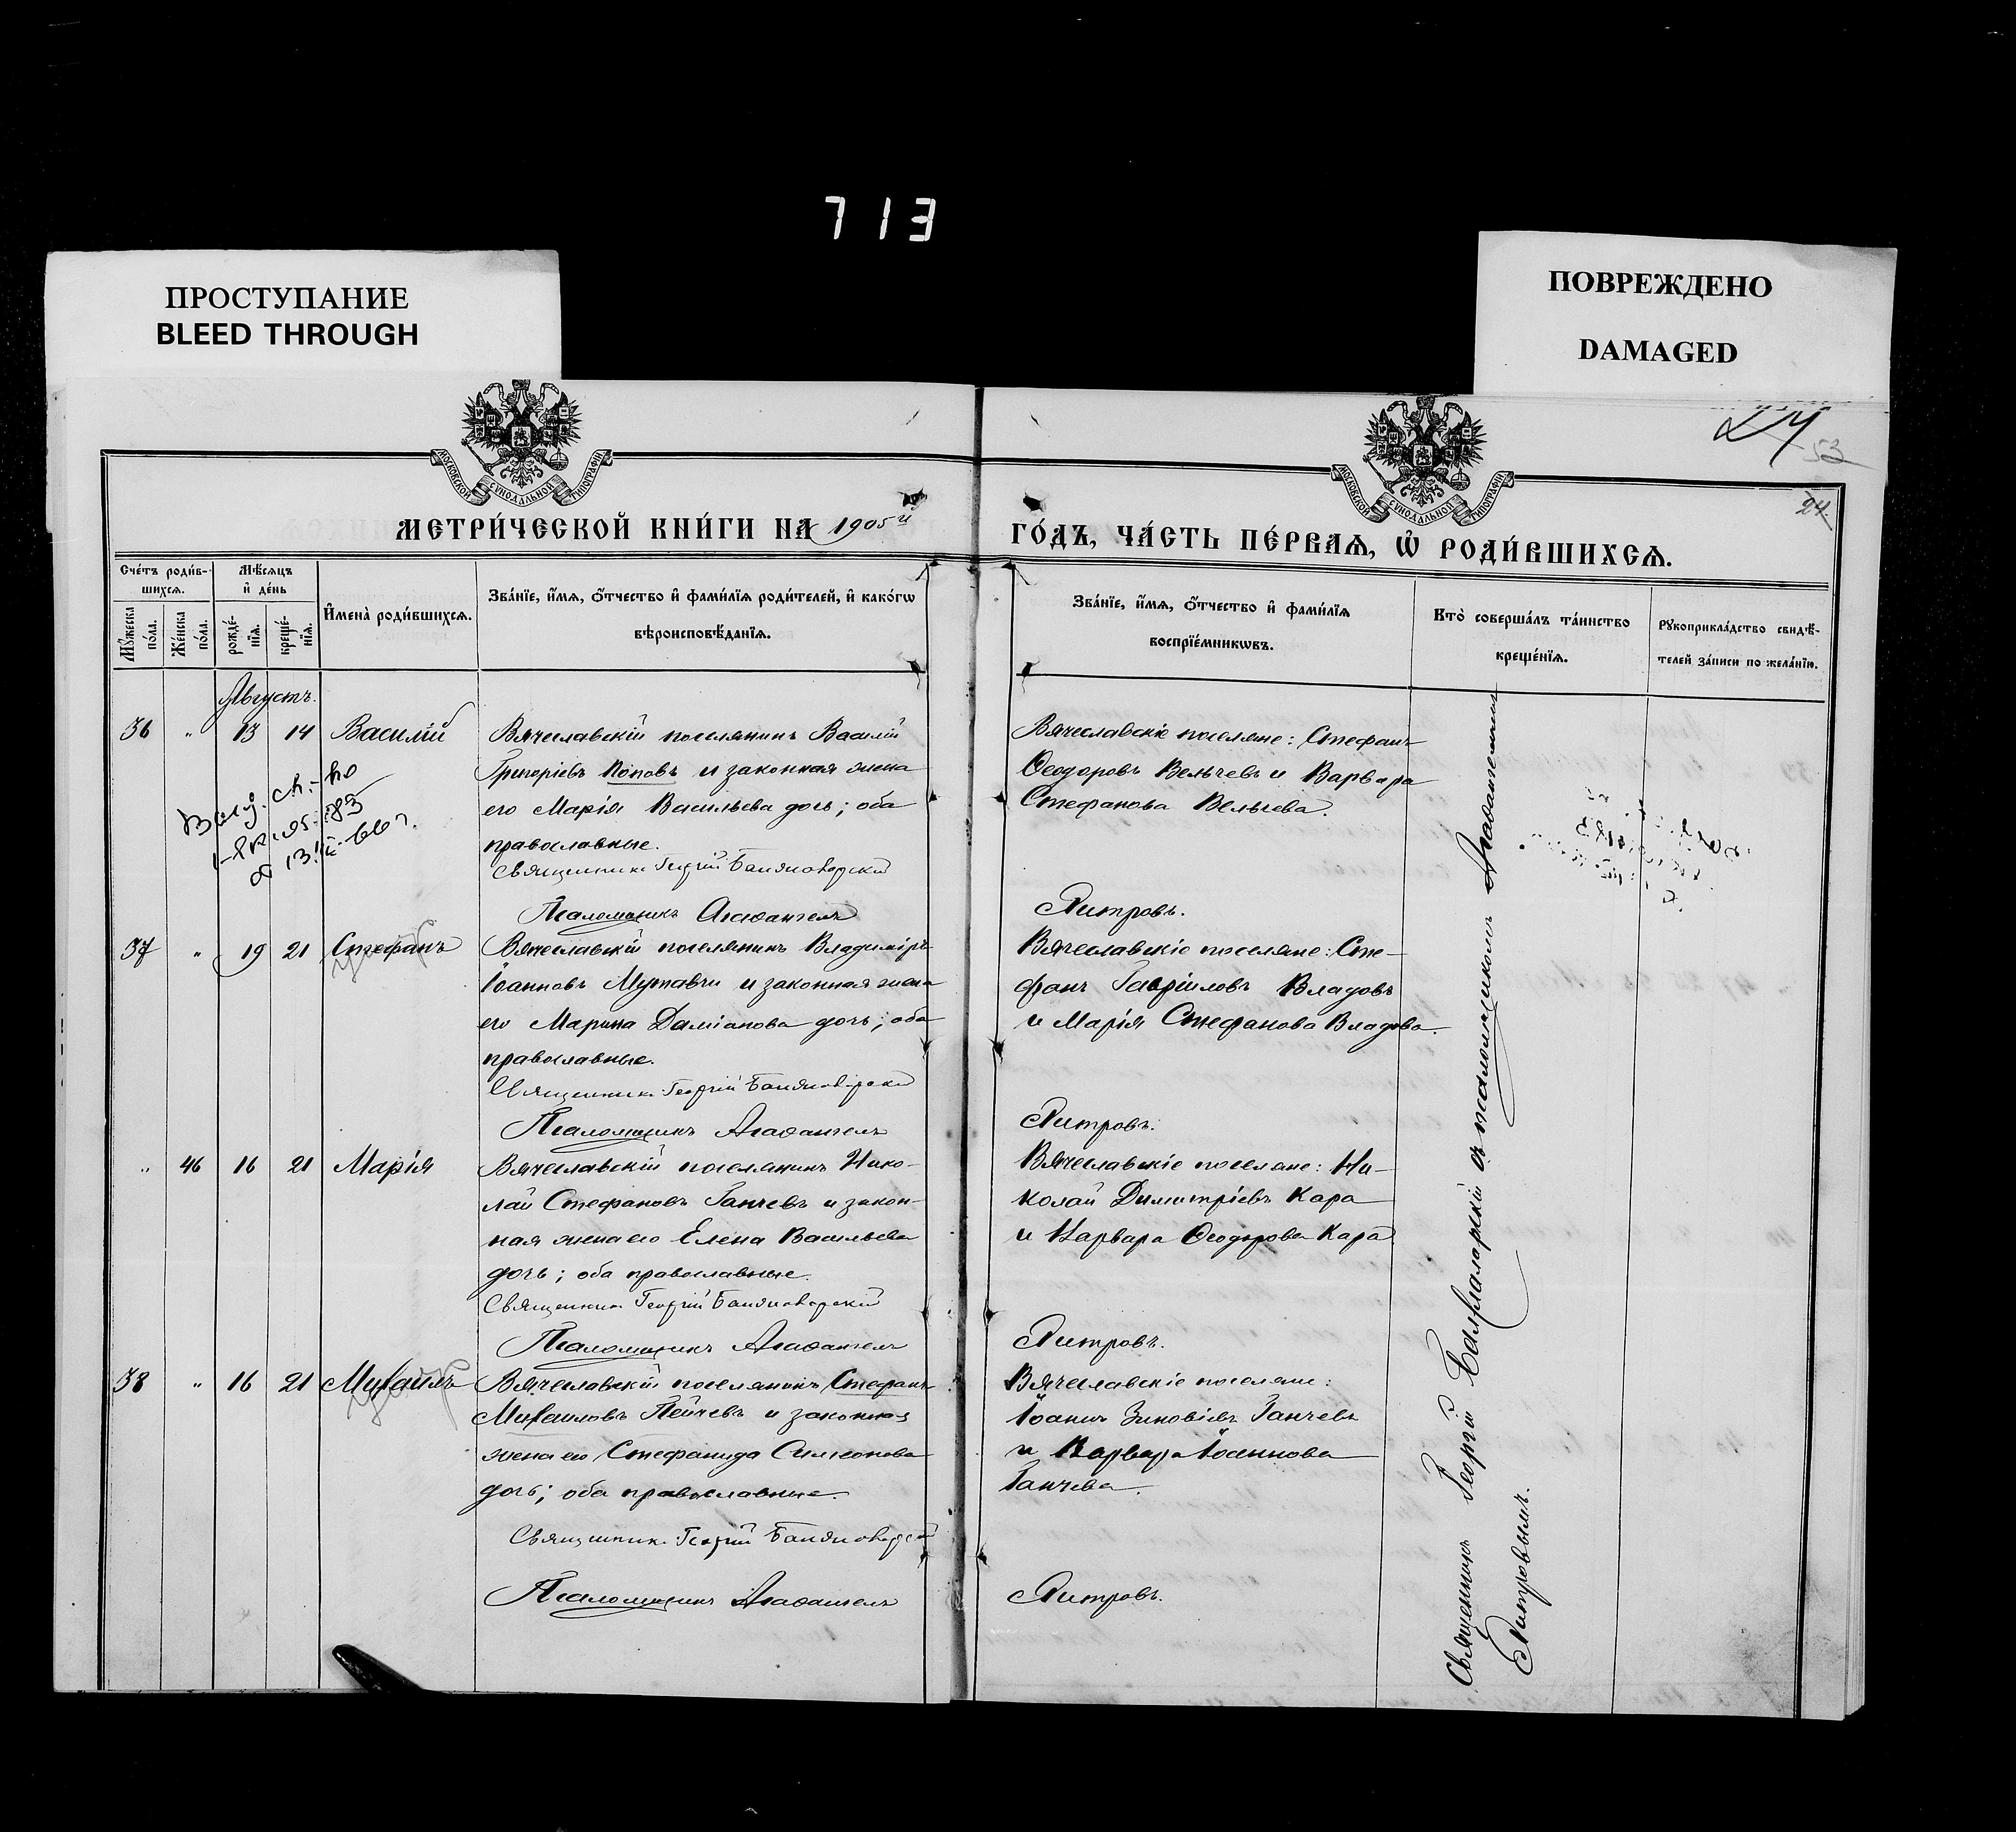 713
ПРОСТУПАНИЕ
BLEED THROUGH
ПОВРЕЖДЕНО
DAMAGED
24
53
24
МОСКОВСКОЙ СѴНОДАЛЬНОЙ ТИПОГРАФІИ
МОСКОВСКОЙ СѴНОДАЛЬНОЙ ТИПОГРАФІИ
МЕТРИ́ЧЕСКОЙ КНИ́ГИ НА 1905й
ГО́ДЪ, ЧА́СТЬ ПЕ́РВАѦ, Ѡ҆ РОДИ́ВШИХСѦ.
Сче́тъ роди́в-
шихсѧ.
Мѣ́сѧцъ
и҆ де́нь
Мꙋ́жеска по́ла.
Же́нска по́ла.
рожде́-нїѧ.
креще́-нїѧ.
И҆мена̀ роди́вшихсѧ.
Зва́нїе, и҆́мѧ, ѻ҆́тчество и҆ фами́лїѧ роди́телей, и҆ како́гѡ
вѣроисповѣ́данїѧ.
Зва́нїе, и҆́мѧ, ѻ҆́тчество и҆ фами́лїѧ
воспрїе́мникѡвъ.
Кто̀ соверша́лъ та́инство
креще́нїѧ.
Рꙋкоприкла́дство свидѣ́-
телей за́писи по жела́нїю.
Августъ.
36 " 13 14 Василій
Вячеславскій поселянинъ Василій
Григоріевъ Поповъ и законная жена
его Марія Васильева дочь; оба
православные.
Священникъ Георгій
Псаломщикъ Агаѳангелъ
Вячеславскіе поселяне: Стефанъ
Ѳеодоровъ Вельчевъ и Варвара
Стефанова Вельчева.
Питровъ.
37 " 19 21 Стефанъ
Вячеславскій поселянинъ Владиміръ
Іоанновъ Мутавчи и законная жена
его Марина Даміанова дочь; оба
православные.
Священникъ Георгій
Псаломщикъ Агаѳангелъ
Вячеславскіе поселяне: Сте-
фанъ Гавріиловъ Владовъ
и Марія Стефанова Владова.
Питровъ.
" 46 16 21 Марія
Вячеславскій поселянинъ Нико-
лай Стефановъ Ганчевъ и закон-
ная жена его Елена Васильева
дочь; оба православные.
Священникъ Георгій
Псаломщикъ Агаѳангелъ
Вячеславскіе поселяне: Ни-
колай Димитріевъ Кара
и Варвара Ѳеодорова Кара
Питровъ.
38 " 16 21 Михаилъ
Вячеславскій поселянинъ Стефанъ
Михаиловъ Пейчевъ и законная
жена его Стефанида Симеонова
дочь; оба православные.
Священникъ Георгій
Псаломщикъ Агаѳангелъ
Вячеславскіе поселяне:
Іоаннъ Зиновіевъ Ганчевъ
и Варвара Іоаннова
Ганчева.
Питровъ.
Священникъ Георгій съ псаломщикомъ Агаѳангеломъ
Питровымъ.